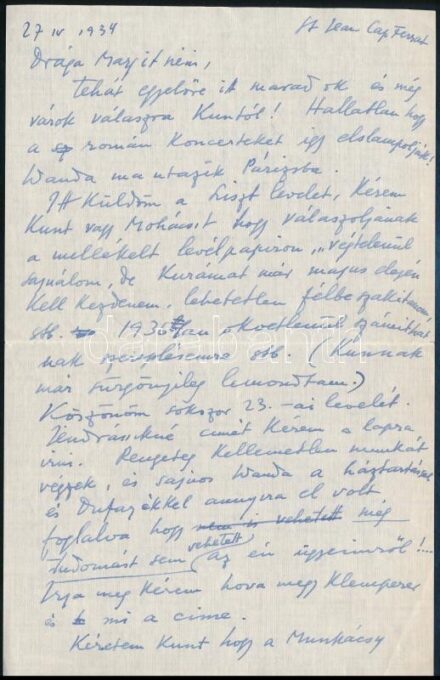 27 IV 1934 St Jean Cap Ferrat
Drága Margit néni,
Tehát egyelőre itt maradok és még
várok válaszra Kuntól! Hallatlan hogy
a román koncerteket így elslampolják!
Wanda ma utazik Párizsba.
Itt küldöm a Liszt levelet, kérem
Kunt vagy Mohácsit hogy válaszoljanak
a mellékelt levélpapiron „végtelenül
sajnálom, de kuramat már majus elején
kell kezdenem, lehetetlen félbeszakitanom,
stb. 1936ban okvetlenül számithat
nak szereplésemre stb. (Kunnak
már sürgönyileg lemondtam.)
Köszönöm sokszor 23.-ai levelét.
cimét kérem a lapra
irni. Rengeteg kellemetlen munkát
végzek, és sajnos Wanda a háztartással
és annyira el volt
foglalva hogy nem is vehetett még
tudomást sem vehetett az én ügyeimről!...
Irja meg kérem hova megy Klemperer
és mi a cime.
Kéretem Kunt hogy a Munkácsy
darabanth